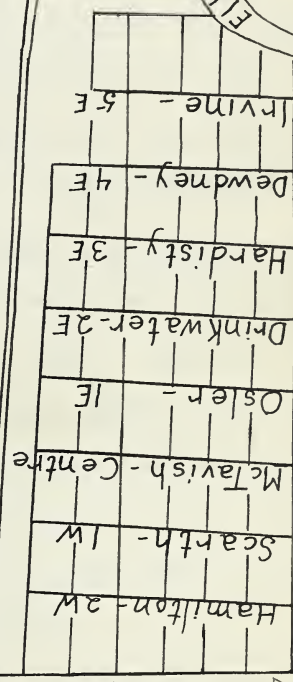 Hamilton - 2W
Scarth - 1W
McTavish - Centre
Osler - 1E
Drinkwater - 2E
Hardisty - 3E
Dewdney - 4E
Irvine - 5E